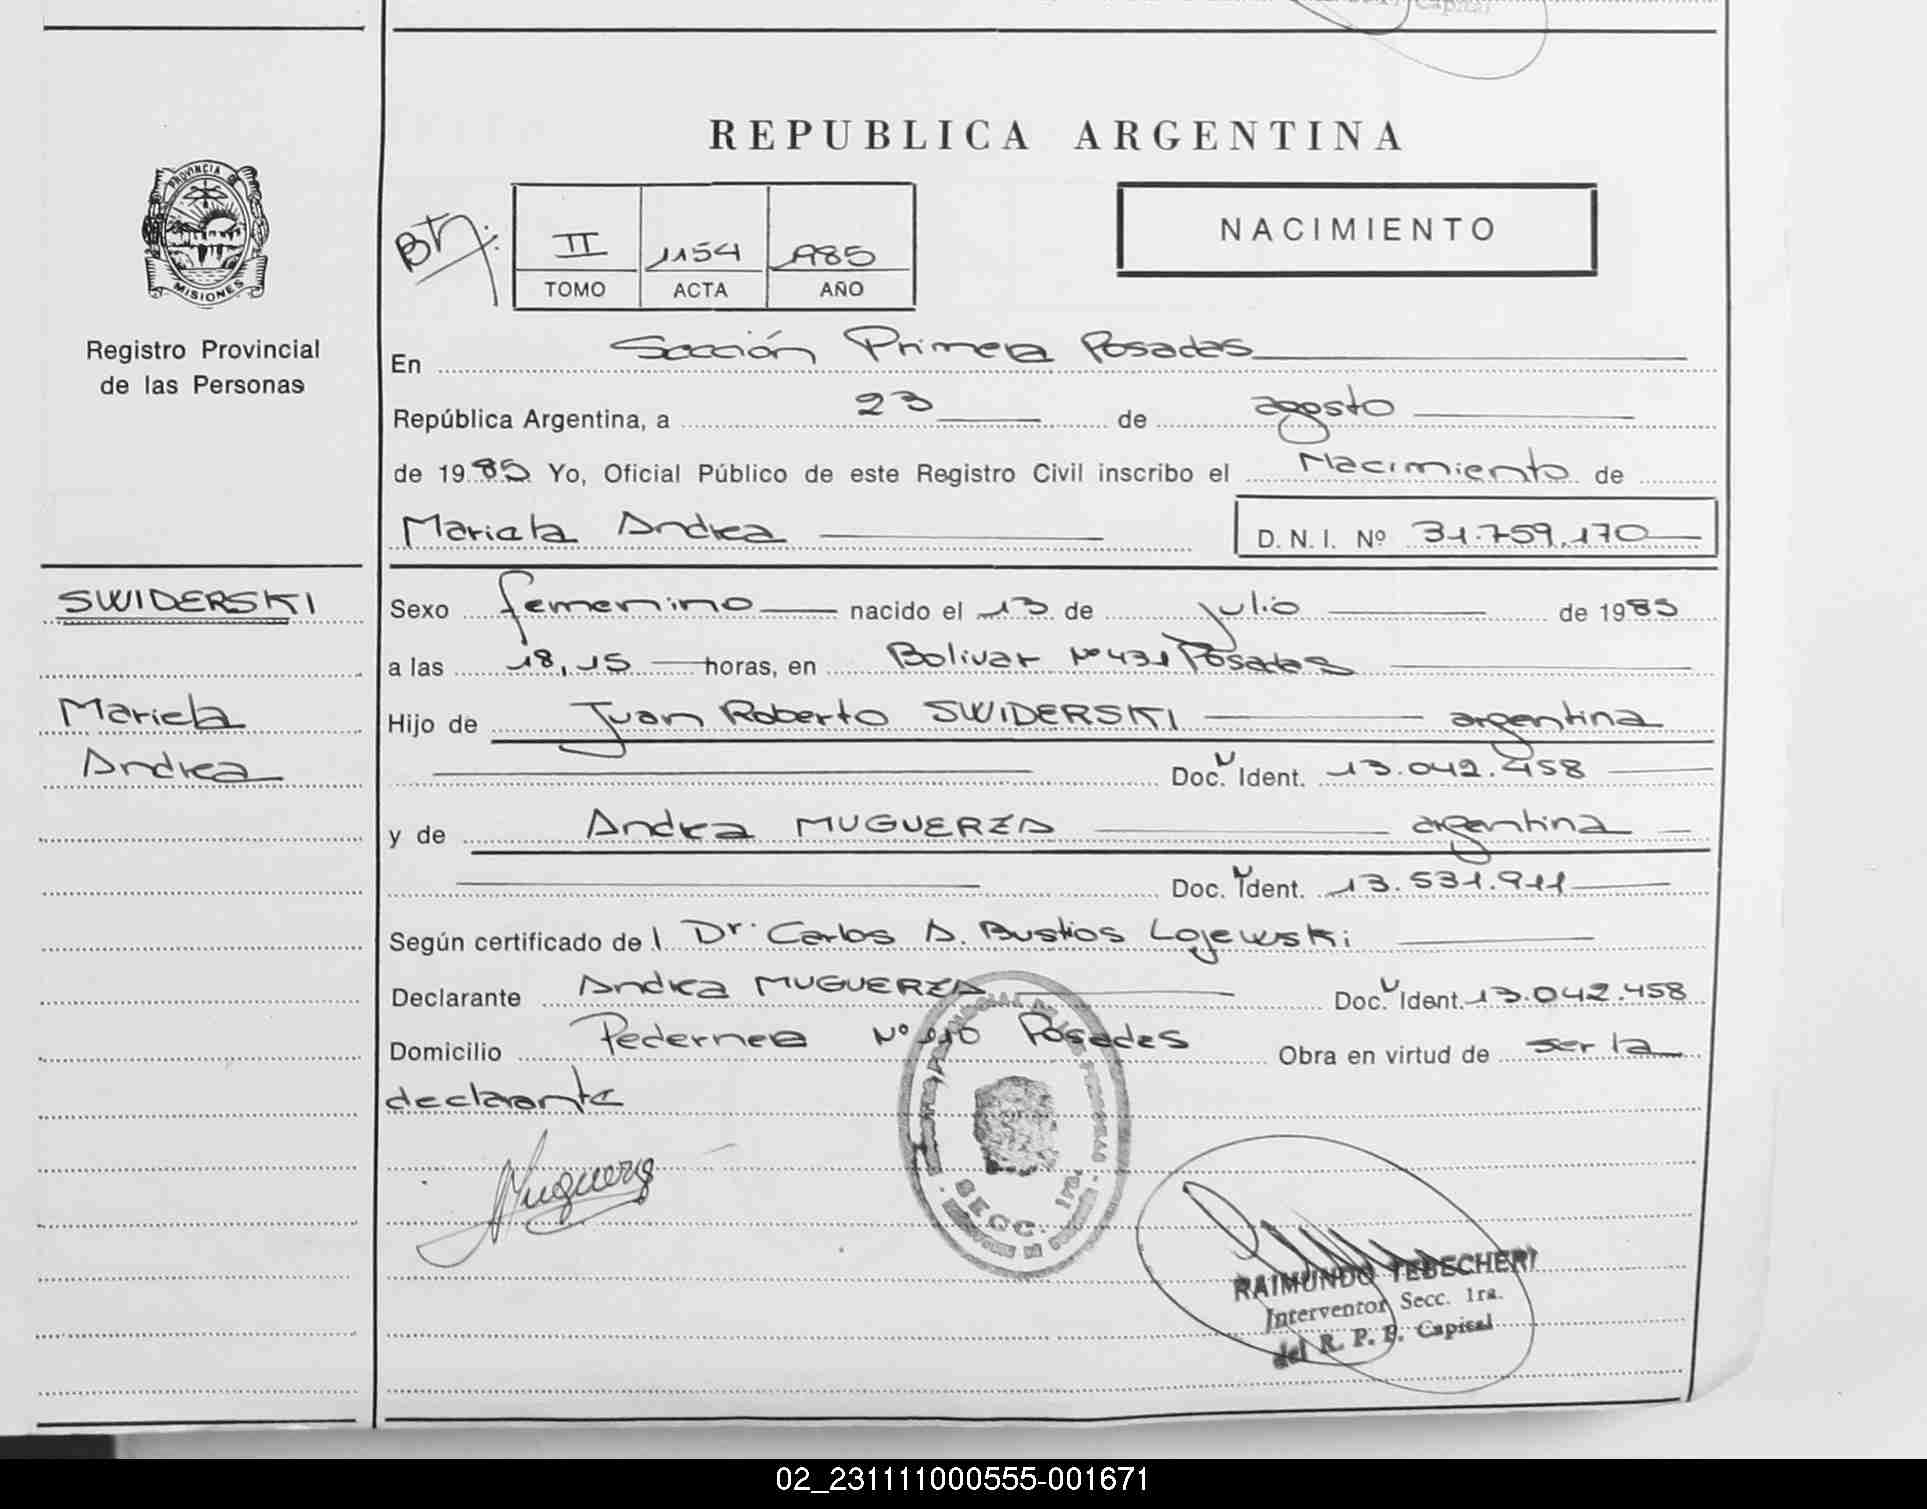 REPUBLICA ARGENTINA
PROVINCIA DE
MISIONES
Registro Provincial
de las Personas
II 1154 1985
TOMO ACTA AÑO
NACIMIENTO
En Sección Primera Posadas
República Argentina, a 23 de agosto
de 1985 Yo, Oficial Público de este Registro Civil inscribo el Nacimiento de
Mariela Andrea D. N. I. Nº 31.759.170
SWIDERSKI
Mariela
Andrea
Sexo femenino nacido el 13 de julio de 1985
a las 18,15 horas, en Bolivar Nº 431 Posadas
Hijo de Juan Roberto SWIDERSKI argentina
Doc. Ident. 13.042.458
y de Andrea MUGUERZA argentina
Doc. Ident. 13.531.911
Según certificado de l Dr. Carlos A. Bustios Lojewski
Declarante Andrea MUGUERZA Doc. Ident. 13.042.458
Domicilio Pedernera Nº Posadas Obra en virtud de ser la
declarante
Muguerza
SECC. 1ra.
RAIMUNDO TEBECHERI
Interventor Secc. 1ra.
del R. P. P. Capital
02_231111000555-001671